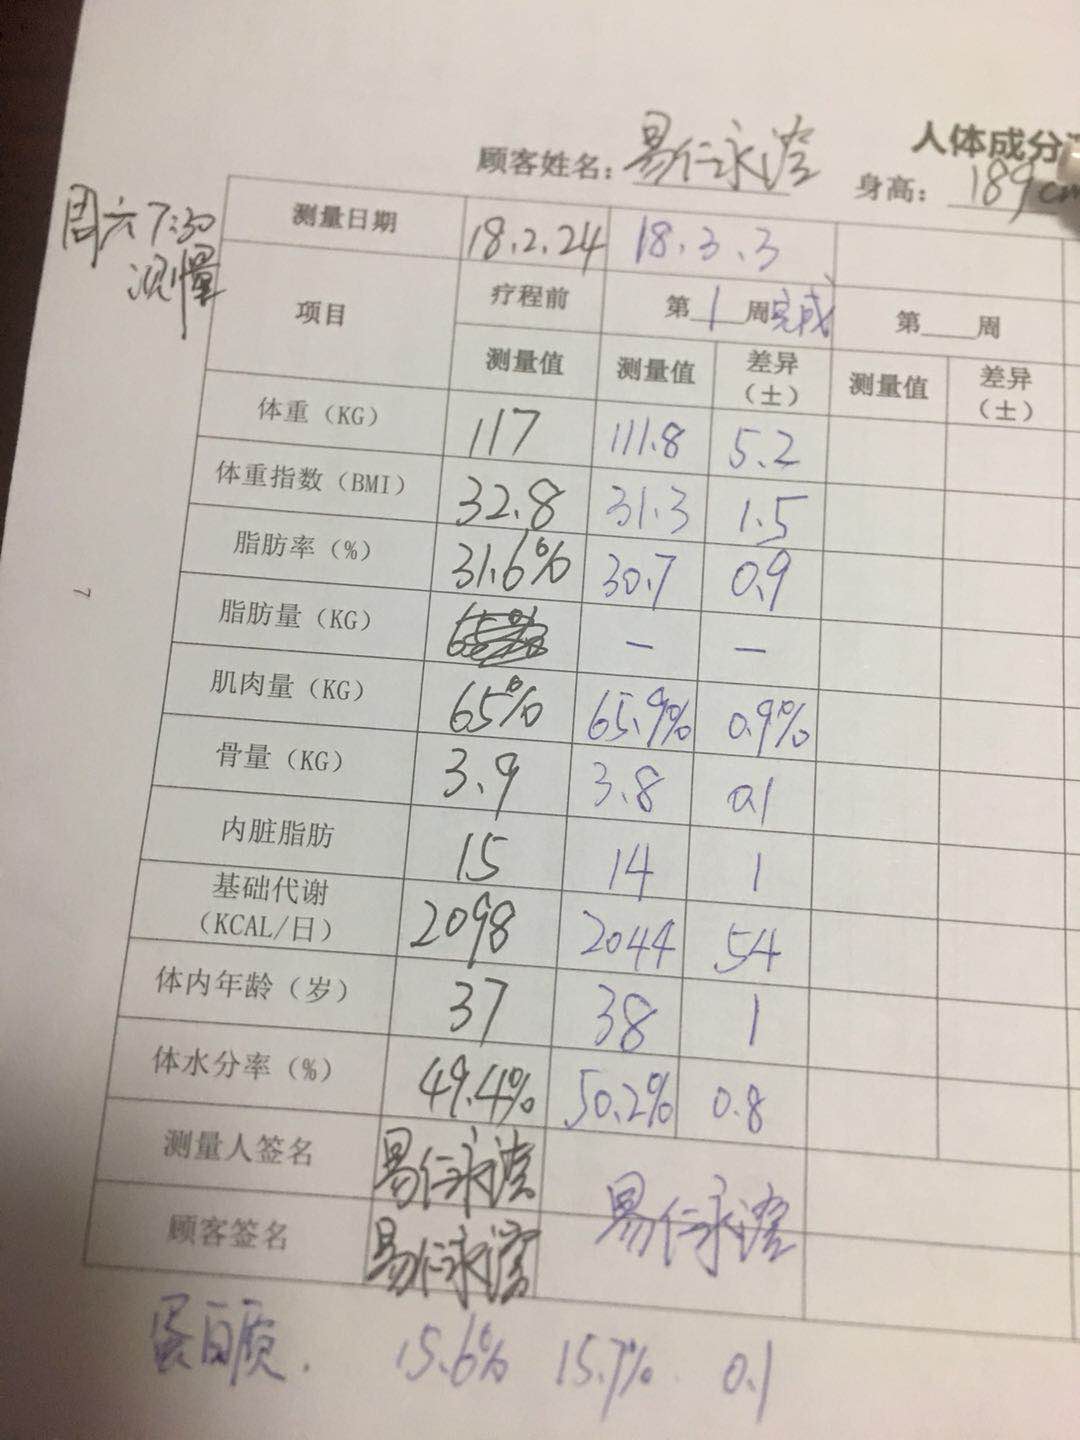 人体成分
顾客姓名：易仁永 身高：189cm
周六7:30
测量
测量日期 18.2.24 18.3.3
项目 疗程前 第1周完成 第__周
测量值 测量值 差异（±） 测量值 差异（±）
体重（KG） 117 111.8 5.2
体重指数（BMI） 32.8 31.3 1.5
脂肪率（%） 31.6% 30.7 0.9
脂肪量（KG） — —
肌肉量（KG） 65% 65.9% 0.9%
骨量（KG） 3.9 3.8 0.1
内脏脂肪 15 14 1
基础代谢
（KCAL/日） 2098 2044 54
体内年龄（岁） 37 38 1
体水分率（%） 49.4% 50.2% 0.8
测量人签名 易仁永
顾客签名 易仁永 易仁永
蛋白质. 15.6% 15.7% 0.1
7